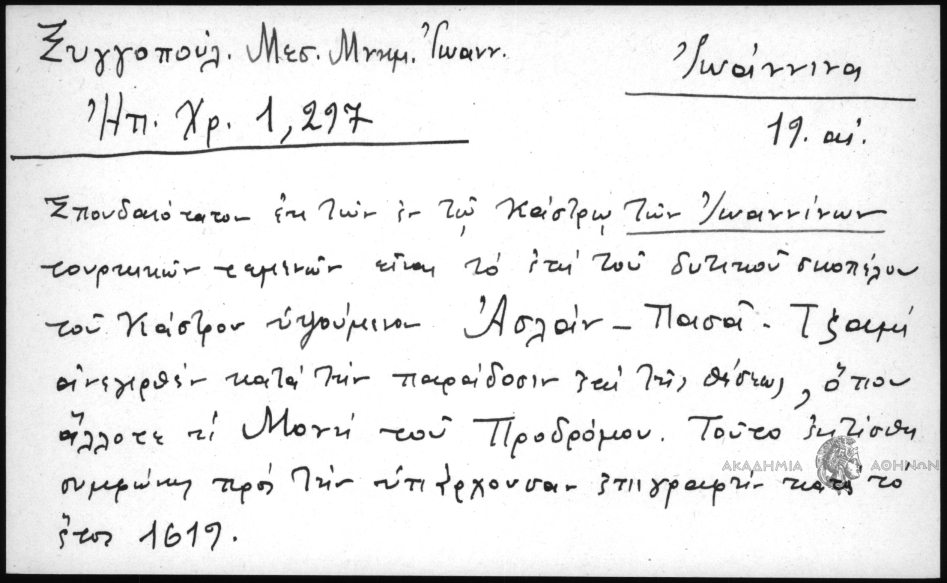 Ξυγγοπούλ. Μεσ. Μνημ. Ἰωανν.
Ἠπ. Χρ. 1, 297
Ἰωάννινα
19. αἰ.
Σπουδαιότατον ἐκ τῶν ἐν τῷ Κάστρῳ τῶν Ἰωαννίνων
τουρκικῶν τεμενῶν εἶναι τὸ ἐπὶ τοῦ δυτικοῦ σκοπέλου
τοῦ Κάστρου ὑψούμενον Ἀσλὰν - Πασᾶ - Τζαμί
ἀνεγερθὲν κατὰ τὴν παράδοσιν ἐπὶ τῆς θέσεως, ὅπου
ἄλλοτε ἡ Μονὴ τοῦ Προδρόμου. Τοῦτο ἐκτίσθη
συμφώνως πρὸς τὴν ὑπάρχουσαν ἐπιγραφὴν κατὰ τὸ
ἔτος 1619.
ΑΚΑΔΗΜΙΑ ΑΘΗΝΩΝ